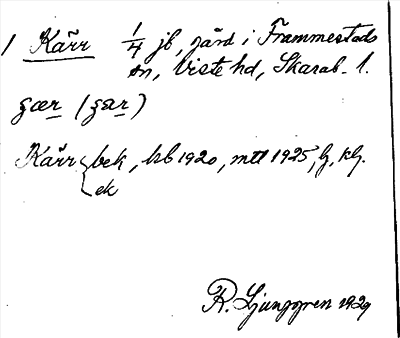 1 Kärr 1/4 jb, gård i Frammestads
sn, Viste hd, Skarab. l.
Kärr { bek, hb 1920, mtl 1925,
ek
R. Ljunggren 1929